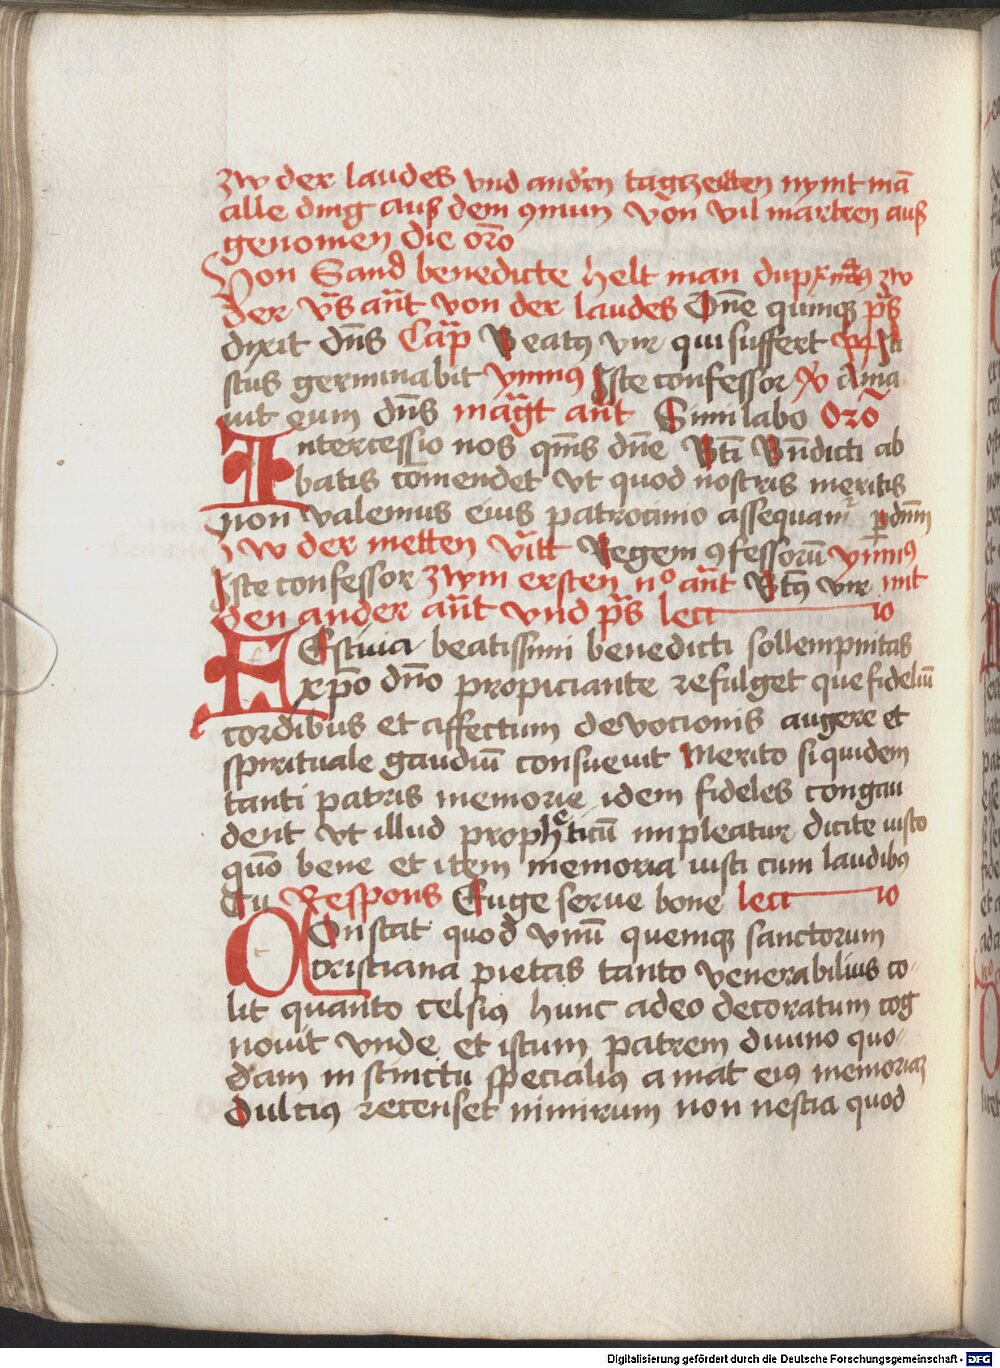 zw der laudes vnd andern tagzeitten nymt mā
alle ding auß dem ꝯmun von vil martren auß
genomen die orō
Von Sand benedicte helt man dup zw
der vs̄ ant̄ von der laudes Dn̄e quinqꝫ ps̄
dixit dn̄s Cap̄ Beatꝯ vir qui suffert Iu
stus germinabit ymnꝯ Iste confessor ℣ Ama
uit eum dn̄s maḡt ant̄ Similabo Orō
Intercessio nos qm̄s dn̄e Bt̄i Bn̄dicti ab
batis com̄endet vt quod nostris meritis
non valemus eius patrocinio assequam̄ꝛ ꝑ dn̄m
zw der metten vītt Regem ꝯfessorū ymnꝯ
Iste confessor zwm ersten n° ant̄ Bt̄ꝯ vir mit
den ander ant̄ vnd ps̄ lectio
FEstiua beatissimi benedicti sollempnitas
xp̄o dn̄o propiciante refulget que fideliū
cordibus et affectum devocionis augere et
spirituale gaudiū consueuit Merito siquidem
tanti patris memorie idem fideles congau
dent vt illud propheticū impleatur dicite iusto
quō bene et item memoria iusti cum laudibꝯ
Tu Respons Euge serue bone lectio
COnstat quod vnū quemqꝫ sanctorum
cristiana pietas tanto venerabilius co
lit quanto celsiꝯ hunc adeo decoratum cog
nouit vnde et istum patrem diuino quo
dam instinctu specialiꝯ amat eiꝯ memoriaꝫ
dulciꝯ recenset nimirum non nescia quod
Digitalisierung gefördert durch die Deutsche Forschungsgemeinschaft - DFG